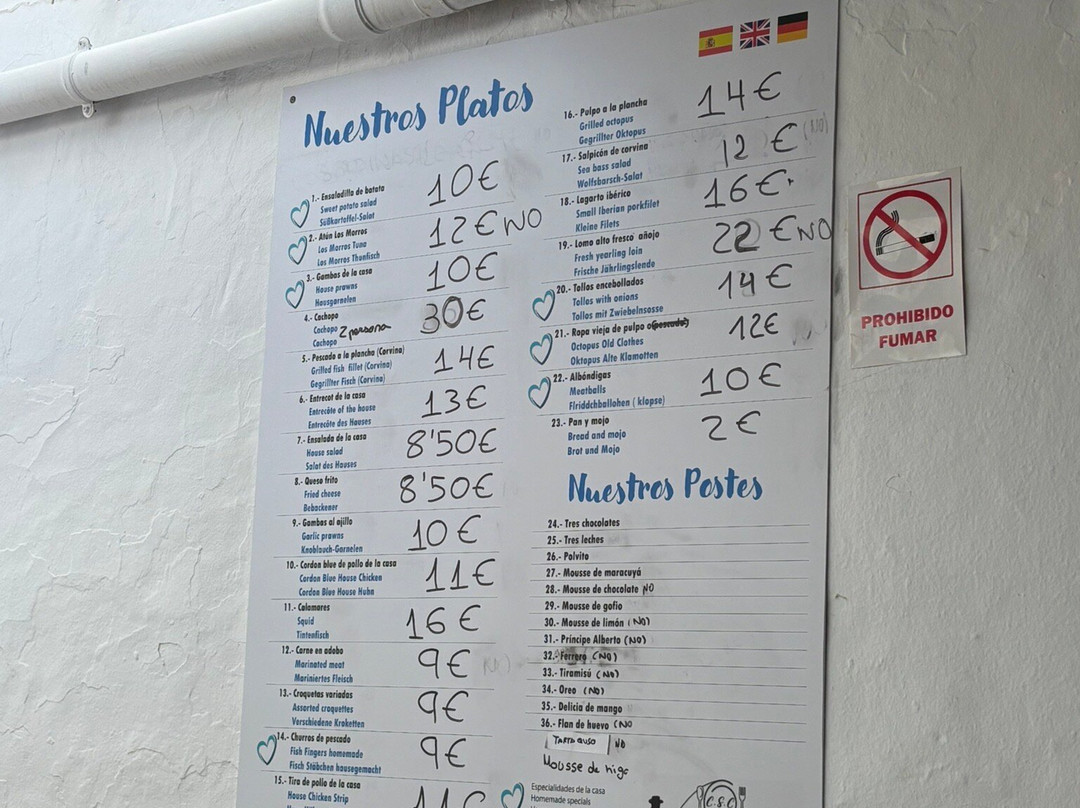 Nuestros Platos
1.- Ensaladilla de batata
Sweet potato salad
Süßkartoffel-Salat
10€
2.- Atún Los Morros
Los Morros Tuna
Los Morros Thunfisch
12€ NO
3.- Gambas de la casa
House prawns
Hausgarnelen
10€
4.- Cachopo
Cachopo 2 persona
Cachopo
30€
5.- Pescado a la plancha (Corvina)
Grilled fish fillet (Corvina)
Gegrillter Fisch (Corvina)
14€
6.- Entrecot de la casa
Entrecôte of the house
Entrecôte des Hauses
13€
7.- Ensalada de la casa
House salad
Salat des Hauses
8'50€
8.- Queso frito
Fried cheese
Bebackener
8'50€
9.- Gambas al ajillo
Garlic prawns
Knoblauch-Garnelen
10€
10.- Cordon blue de pollo de la casa
Cordon Blue House Chicken
Cordon Blue House Huhn
11€
11.- Calamares
Squid
Tintenfisch
16€
12.- Carne en adobo
Marinated meat
Mariniertes Fleisch
9€
13.- Croquetas variadas
Assorted croquettes
Verschiedene Kroketten
9€
14.- Churros de pescado
Fish Fingers homemade
Fisch Stäbchen hausegemacht
9€
15.- Tira de pollo de la casa
House Chicken Strip
11€
16.- Pulpo a la plancha
Grilled octopus
Gegrillter Oktopus
14€
17.- Salpicón de corvina
Sea bass salad
Wolfsbarsch-Salat
12€ (NO)
18.- Lagarto ibérico
Small Iberian porkfilet
Kleine Filets
16€
19.- Lomo alto fresco añojo
Fresh yearling loin
Frische Jährlingslende
22€ NO
20.- Tollos encebollados
Tollos with onions
Tollos mit Zwiebelnsosse
14€
21.- Ropa vieja de pulpo o(pescado)
Octopus Old Clothes
Oktopus Alte Klamotten
12€
22.- Albóndigas
Meatballs
Flriddchballohen ( klopse)
10€
23.- Pan y mojo
Bread and mojo
Brot und Mojo
2€
Nuestros Postes
24.- Tres chocolates
25.- Tres leches
26.- Polvito
27.- Mousse de maracuyá
28.- Mousse de chocolate NO
29.- Mousse de gofio
30.- Mousse de limón (NO)
31.- Príncipe Alberto (NO)
32.- Ferrero (NO)
33.- Tiramisú (NO)
34.- Oreo (NO)
35.- Delicia de mango
36.- Flan de huevo (NO
TARTA QUSO NO
Mousse de higo
Especialidades de la casa
Homemade specials
C.S.C
PROHIBIDO
FUMAR